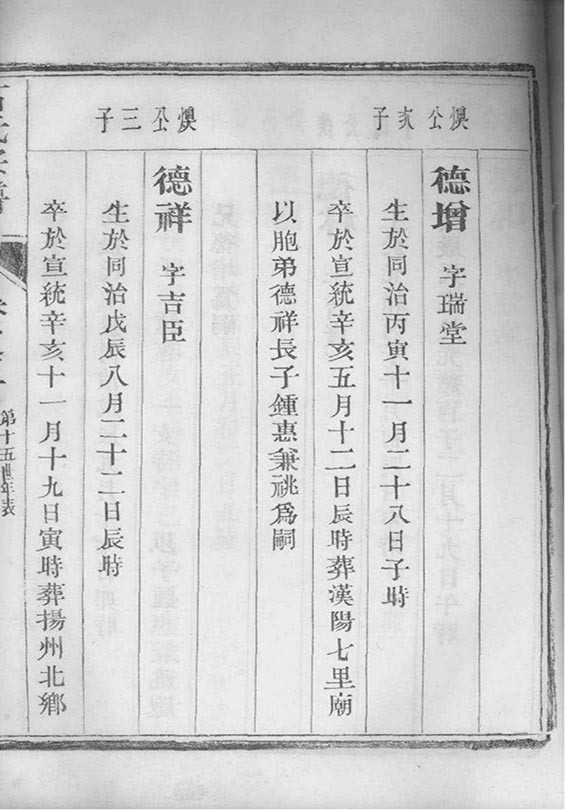 煥公次子
德增 字瑞堂
生於同治丙寅十一月二十八日子時
卒於宣統辛亥五月十二日辰時葬漢陽七里廟
以胞弟德祥長子鍾惠兼祧爲嗣
煥公三子
德祥 字吉臣
生於同治戊辰八月二十二日辰時
卒於宣統辛亥十一月十九日寅時葬揚州北鄉
第十五世年表